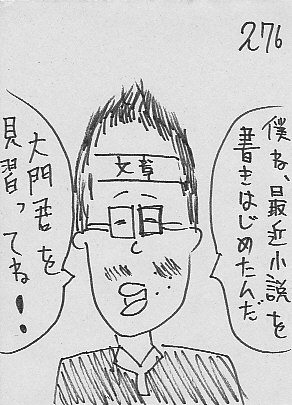 276
僕ね、最近小説を
書きはじめたんだ
文章
大門君を
見習ってね！